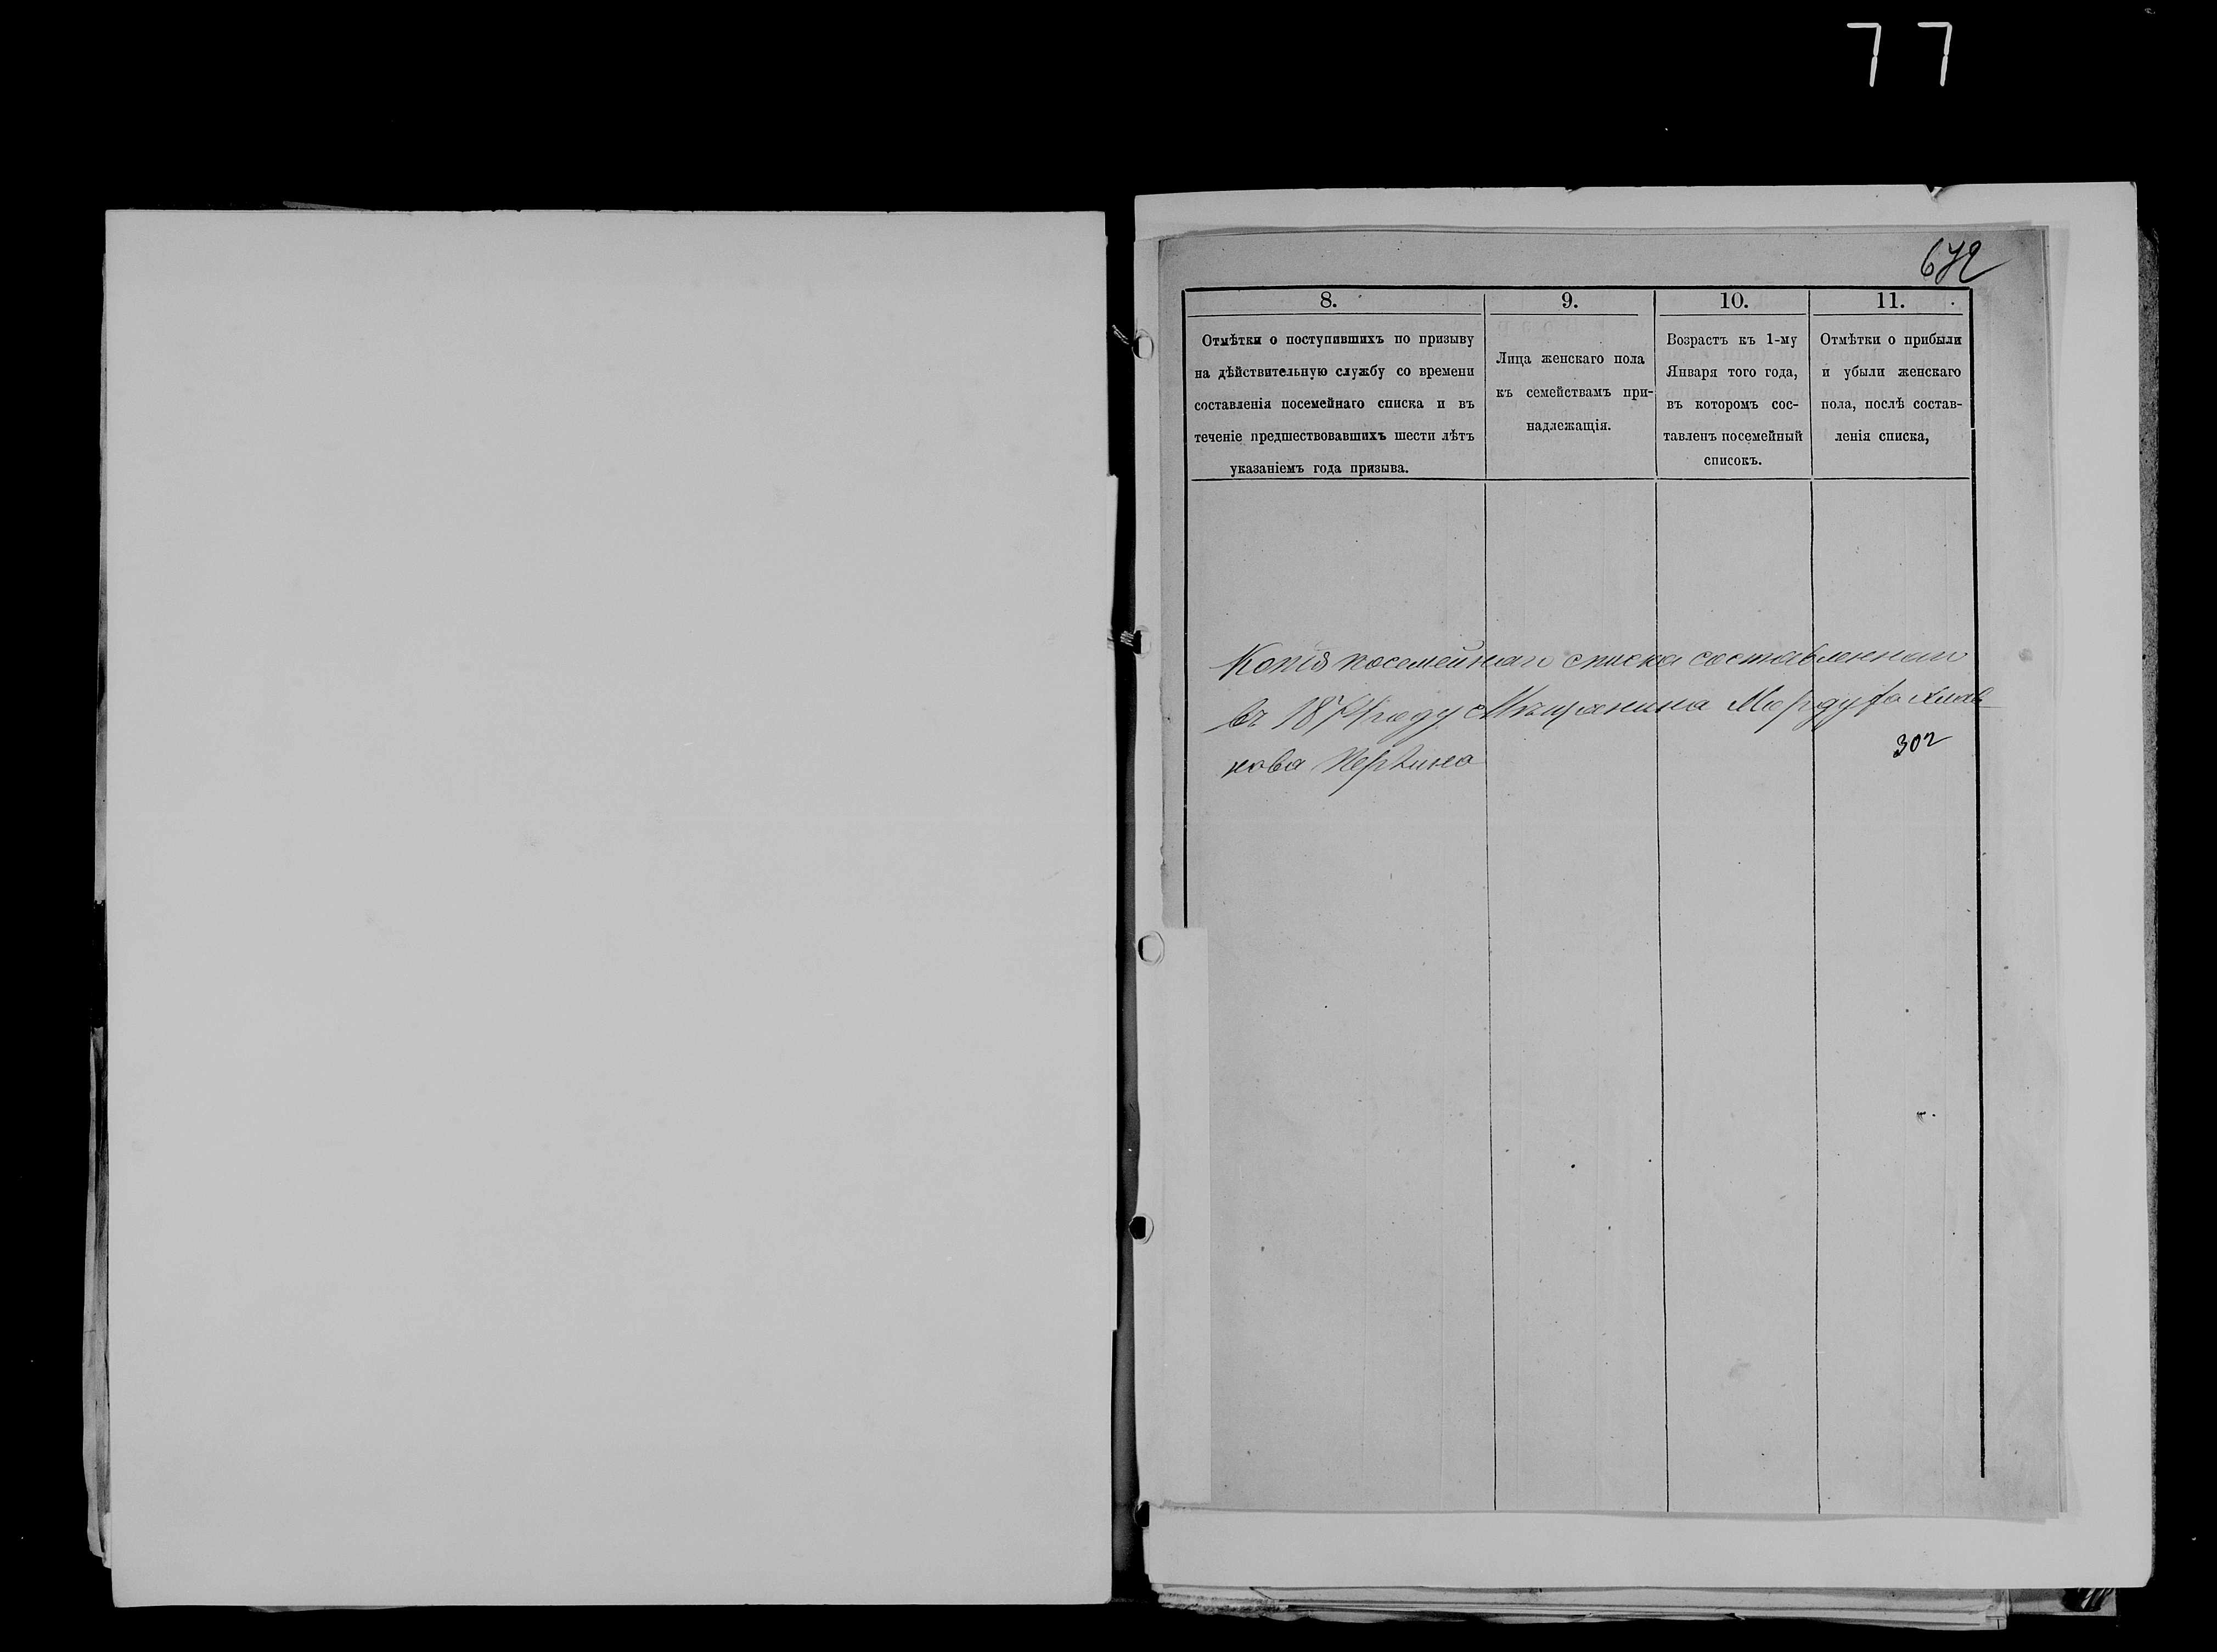 77
672
8.
Отмѣтки о поступившихъ по призыву
на дѣйствительную службу со времени
составленія посемейнаго списка и въ
теченіе предшествовавшихъ шести лѣтъ
указаніемъ года призыва.
9.
Лица женскаго пола
къ семействамъ при-
надлежащія.
10.
Возрастъ къ 1-му
Января того года,
въ которомъ сос-
тавленъ посемейный
списокъ.
11.
Отмѣтки о прибыли
и убыли женскаго
пола, послѣ состав-
ленія списка,
Копія посемейнаго списка составленнаго
въ 1874 году Мѣщанина
302